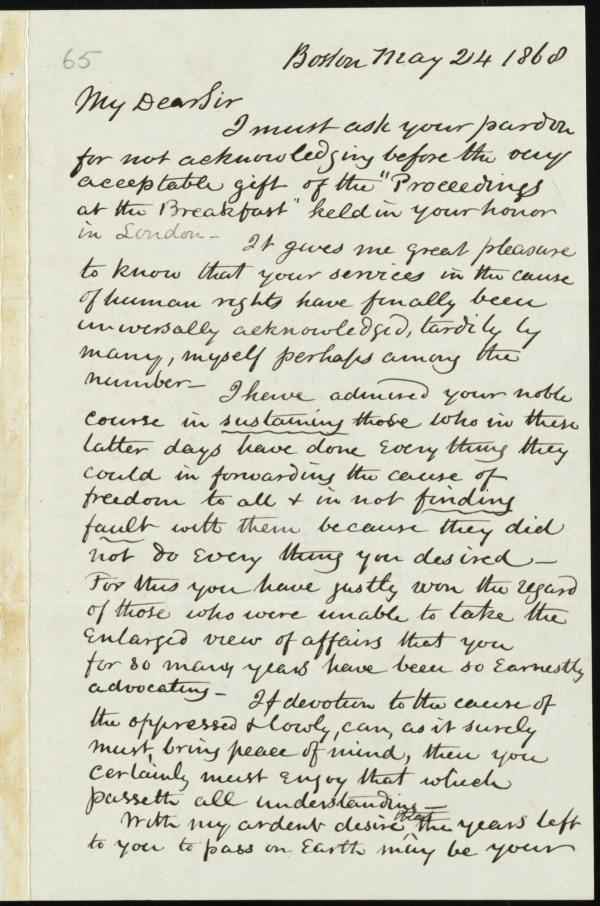 65
Boston May 24 1868
My Dear Sir
I must ask your pardon
for not acknowledging before the very
acceptable gift of the "Proceedings
at the Breakfast" held in your honor
in London -
It gives me great pleasure
to know that your services in the cause
of human rights have finally been
universally acknowledged, tardily by
many, myself perhaps among the
number -
I have admired your noble
course in sustaining those who in these
latter days have done every thing they
could in forwarding the cause of
freedom to all & in not finding
fault with them because they did
not do every thing you desired -
For this you have justly won the regard
of those who were unable to take the
enlarged view of affairs that you
for so many years have been so earnestly
advocating -
If devotion to the cause of
the oppressed & lowly, can, as it surely
must, bring peace of mind, then you
certainly must enjoy that which
passeth all understanding -
With my ardent desire that the years left
to you to pass on Earth may be your